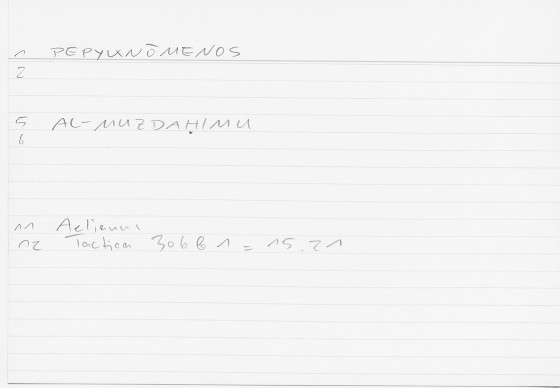 1 PEPYKNŌMENOS
2
5 AL-MUZDAḤIMU
6
11 Aelianus
12 Tactica 306 B 1 = 15.21